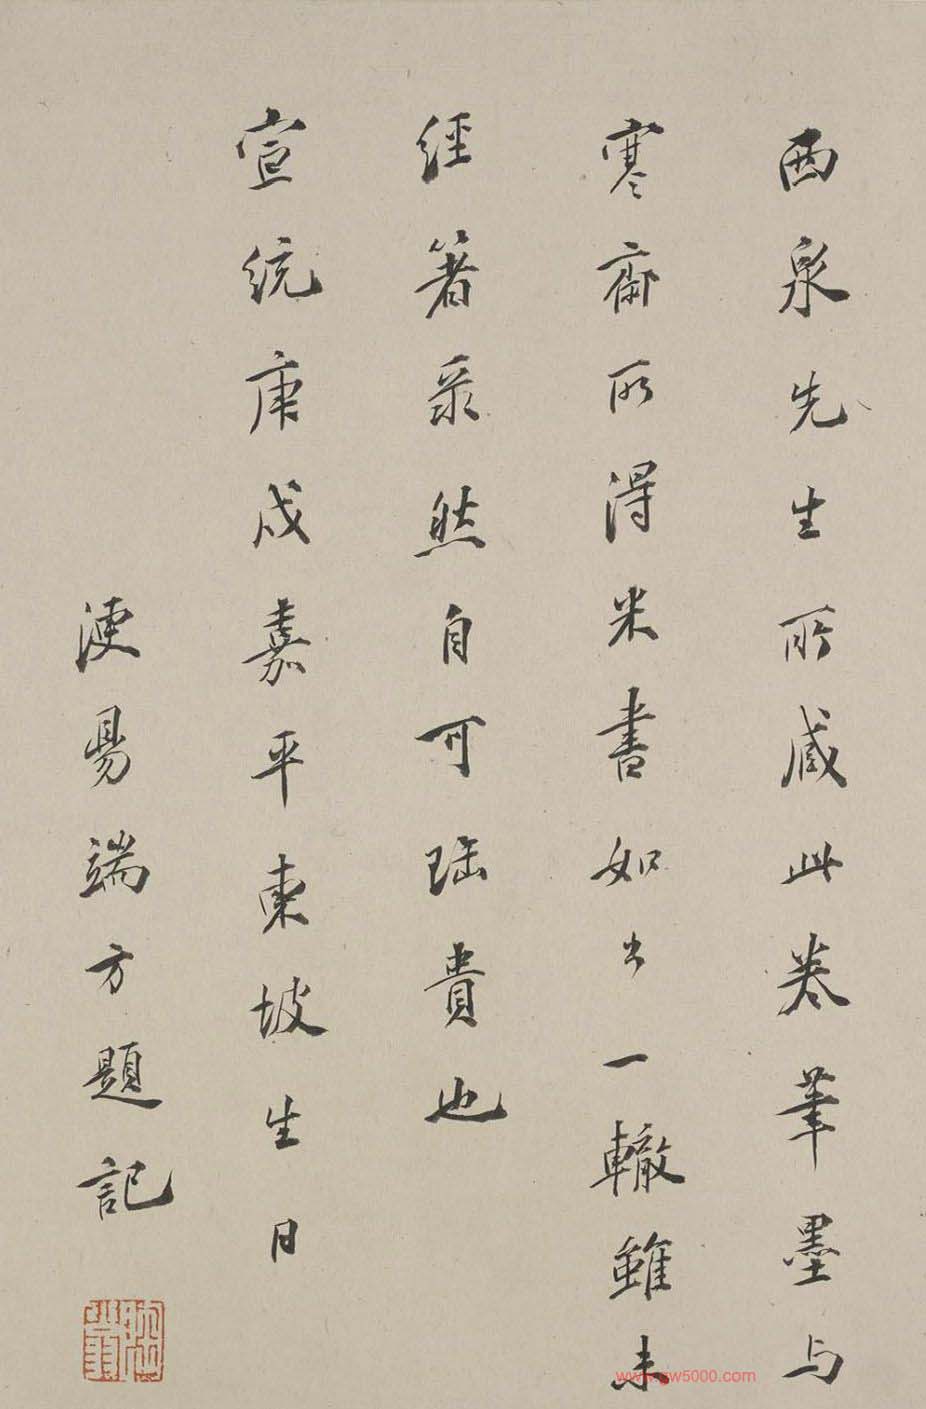 西泉先生所藏此卷筆墨与
寒齋所得米書如出一轍雖未
經箸彔然自可珤貴也
宣統庚戌嘉平東坡生日
浭昜端方題記
www.gw5000.com